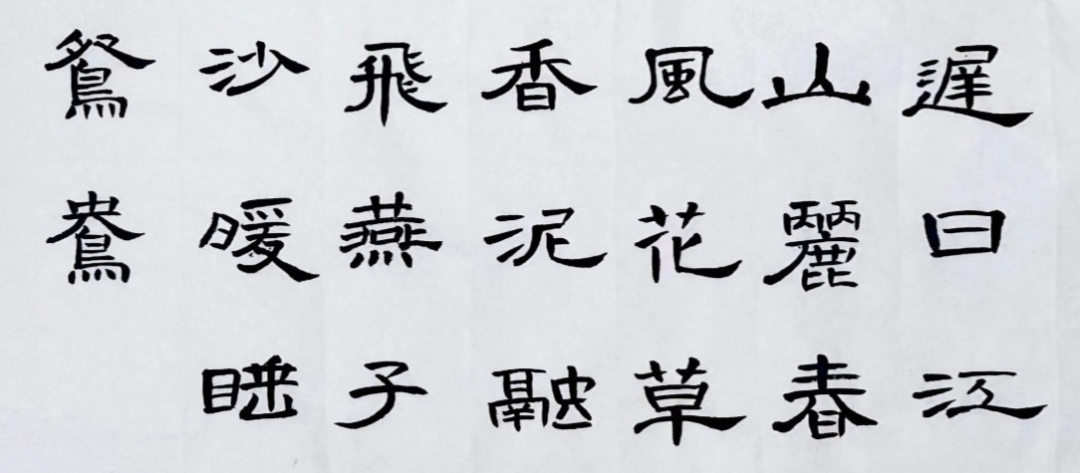 遲日江
山麗春
風花草
香泥融
飛燕子
沙暖睡
鴛鴦